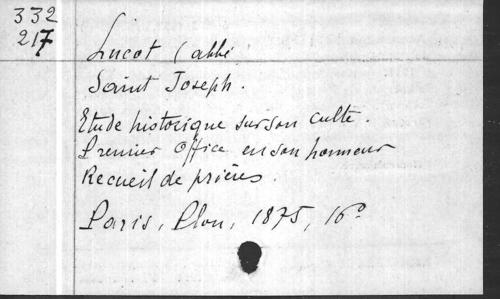 332
217
Lucot (abbé
Saint Joseph.
Etude historique sur son culte.
Premier office en son honneur
Recueil de prières.
Paris, Plon, 1875, 16º